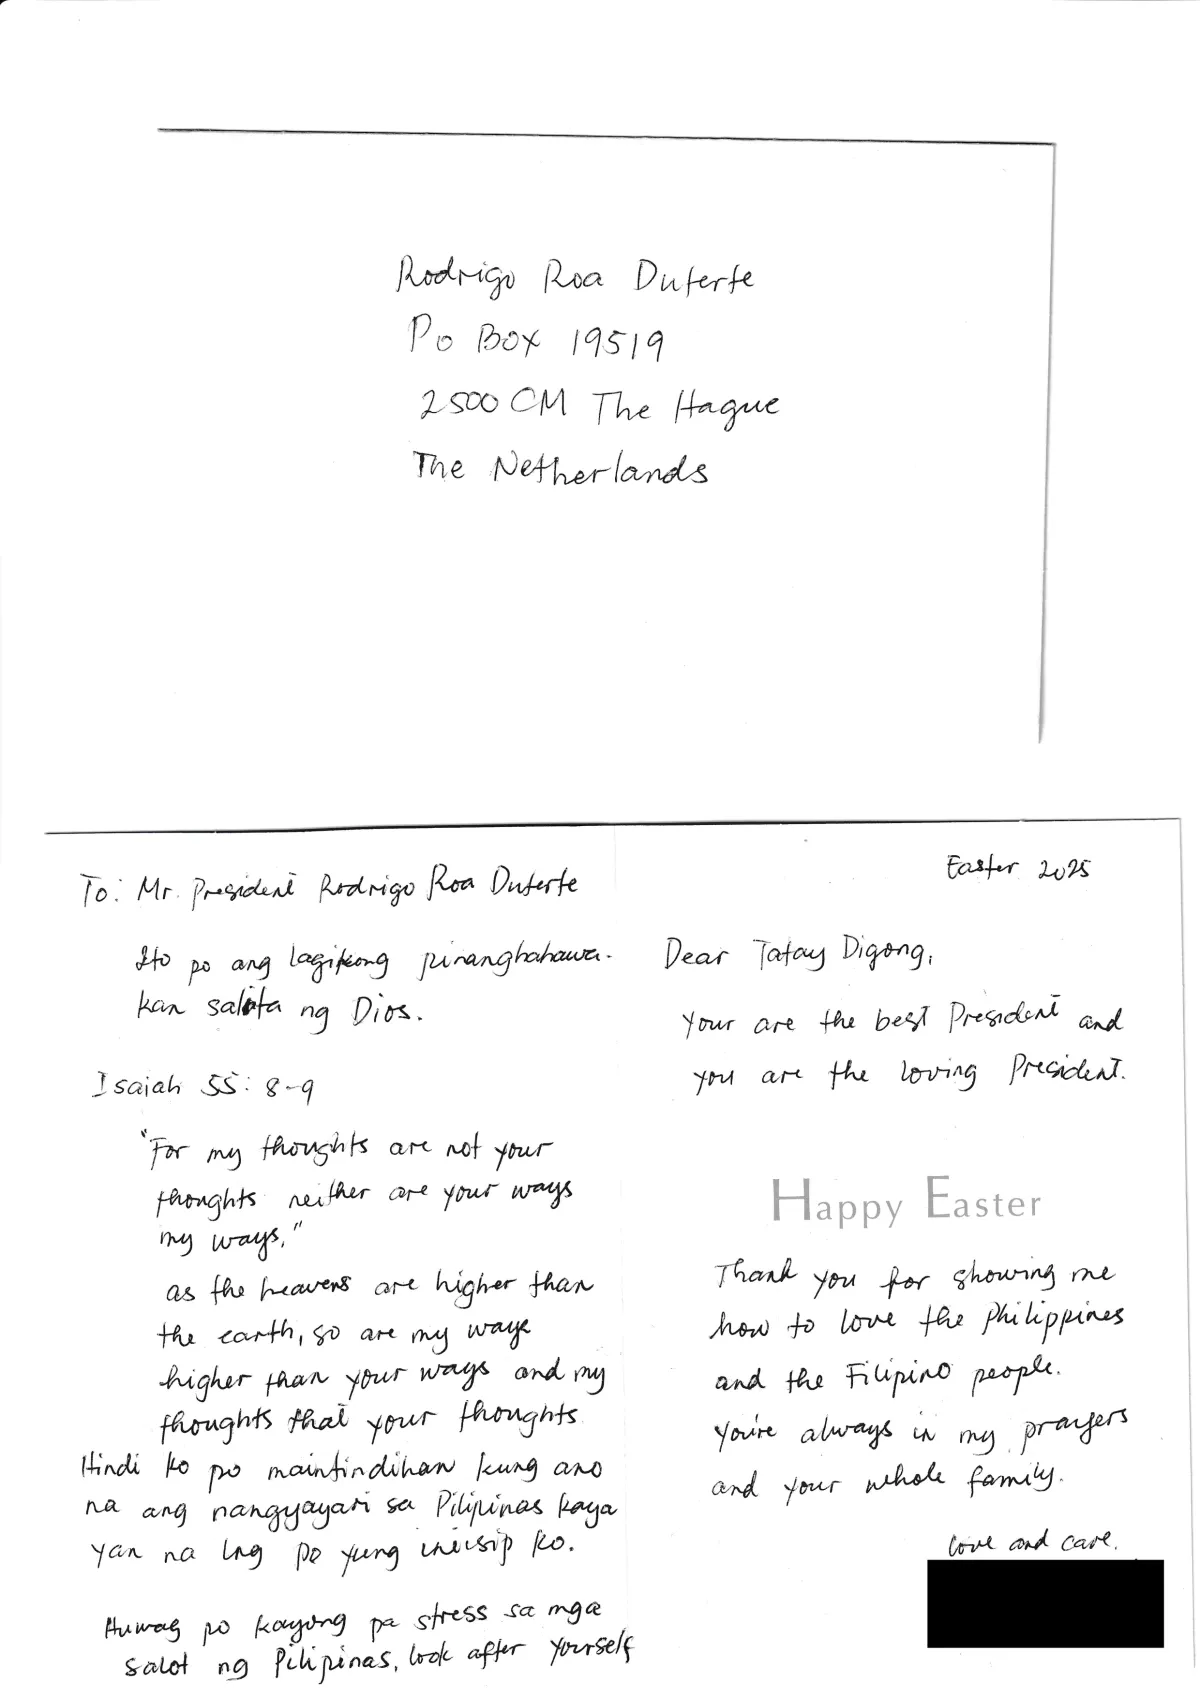 Rodrigo Roa Duterte
Po Box 19519
2500 CM The Hague
The Netherlands
To: Mr. President Rodrigo Roa Duterte
Ito po ang lagikong pinanghahawa-
kan salita ng Dios.
Isaiah 55: 8-9
"For my thoughts are not your
thoughts neither are your ways
my ways,"
as the heavens are higher than
the earth, so are my ways
higher than your ways and my
thoughts that your thoughts
Hindi ko po maintindihan kung ano
na ang nangyayari sa Pilipinas kaya
yan na lng po yung iniisip ko.
Huwag po kayong pa stress sa mga
salot ng Pilipinas, look after yourself
Easter 2025
Dear Tatay Digong,
Your are the best President and
you are the loving President.
Happy Easter
Thank you for showing me
how to love the Philippines
and the Filipino people.
You're always in my prayers
and your whole family.
love and care.